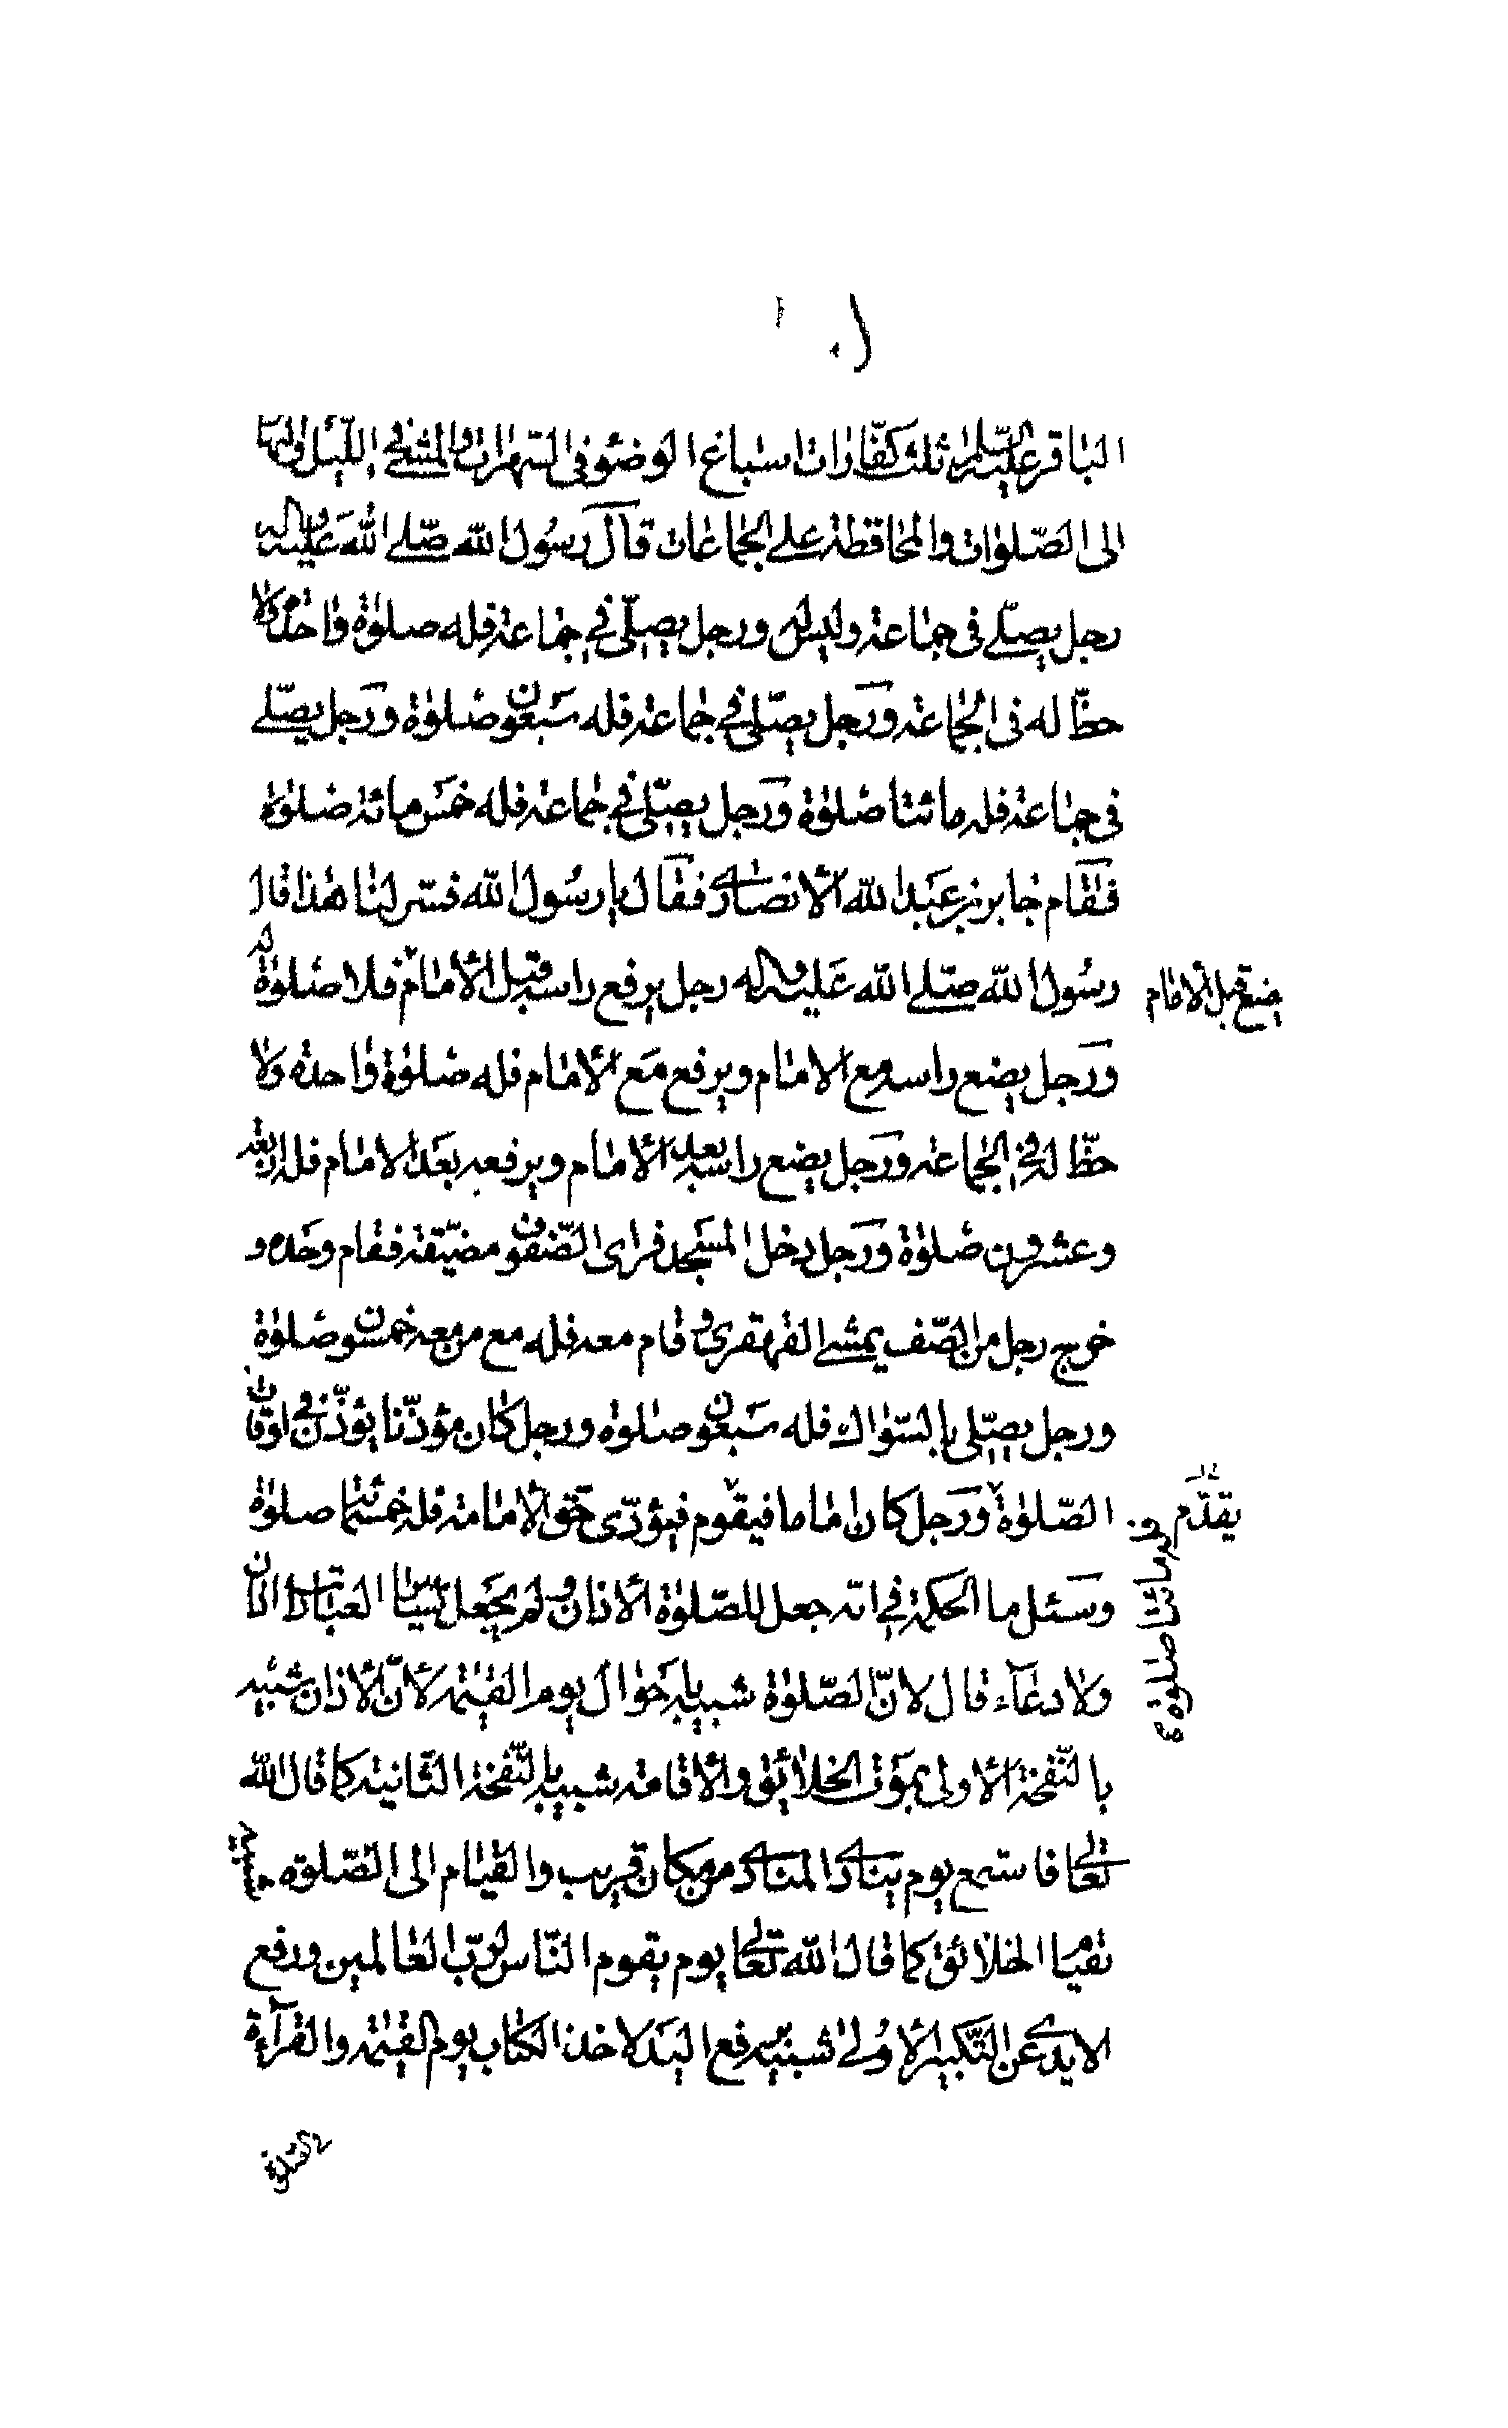 الباقر عليه السلام ثلث كفّارات اسباغ الوضوء فى السبرات والمشى فى الليل والنهار
الى الصّلوات والمحافظة على الجماعات قال رسول الله صلّى الله عليه واله
رجل يصلّى فى جماعة وليس له ورجل يصلّى فى جماعة فله صلوٰة واحدة ولا
حظّ له فى الجماعة ورجل يصلّى فى جماعة فله سبعون صلوٰة ورجل يصلّى
فى جماعة فله مائتا صلوٰة ورجل يصلّى فى جماعة فله خمس مائة صلوٰة
فقام جابر بن عبد الله الأنصارى فقال يا رسول الله فسّر لنا هذا قال
رسول الله صلّى الله عليه واله رجل يرفع راسه قبل الأمام فلا صلوٰة له
يضع قبل الامام
ورجل يضع راسه مع الامام ويرفع مع الأمام فله صلوٰة واحدة ولا
حظّ له فى الجماعة ورجل يضع راسه بعد الأمام ويرفعه بعد الامام فله اربعة
وعشرون صلوٰة ورجل دخل المسجد فراى الصّفوف مضيّقة فقام وحده و
خرج رجل من الصّف يمشى القهقرى وقام معه فله مع من معه خمسون صلوٰة
ورجل يصلّى بالسّواك فله سبعون صلوٰة ورجل كان مؤذّنا يؤذّن فى اوقات
الصّلوٰة ورجل كان اماما فيقوم فيؤدّى حق الأمامة فله خمسمائة صلوٰة
يقدّم
فله مائتا صلوة
وسئل ما الحكمة فى انّه جعل للصّلوٰة الأذان ولم يجعل لسائر العبادات اذان
ولا دعاء قال لانّ الصّلوٰة شبيه باحوال يوم القيمة لأنّ الأذان شبيه
بالنّفخة الأولى بموت الخلائق والأقامة شبيه بالنّفخة الثّانية كما قال الله
تعالى فاستمع يوم يناد المناد من مكان قريب والقيام الى الصّلوة
بقيام الخلائق كما قال الله تعالى يوم يقوم النّاس لربّ العالمين ورفع
الايدى عن التّكبير الأولى شبيه برفع اليد لاخذ الكتاب يوم القيمة والقرآءة